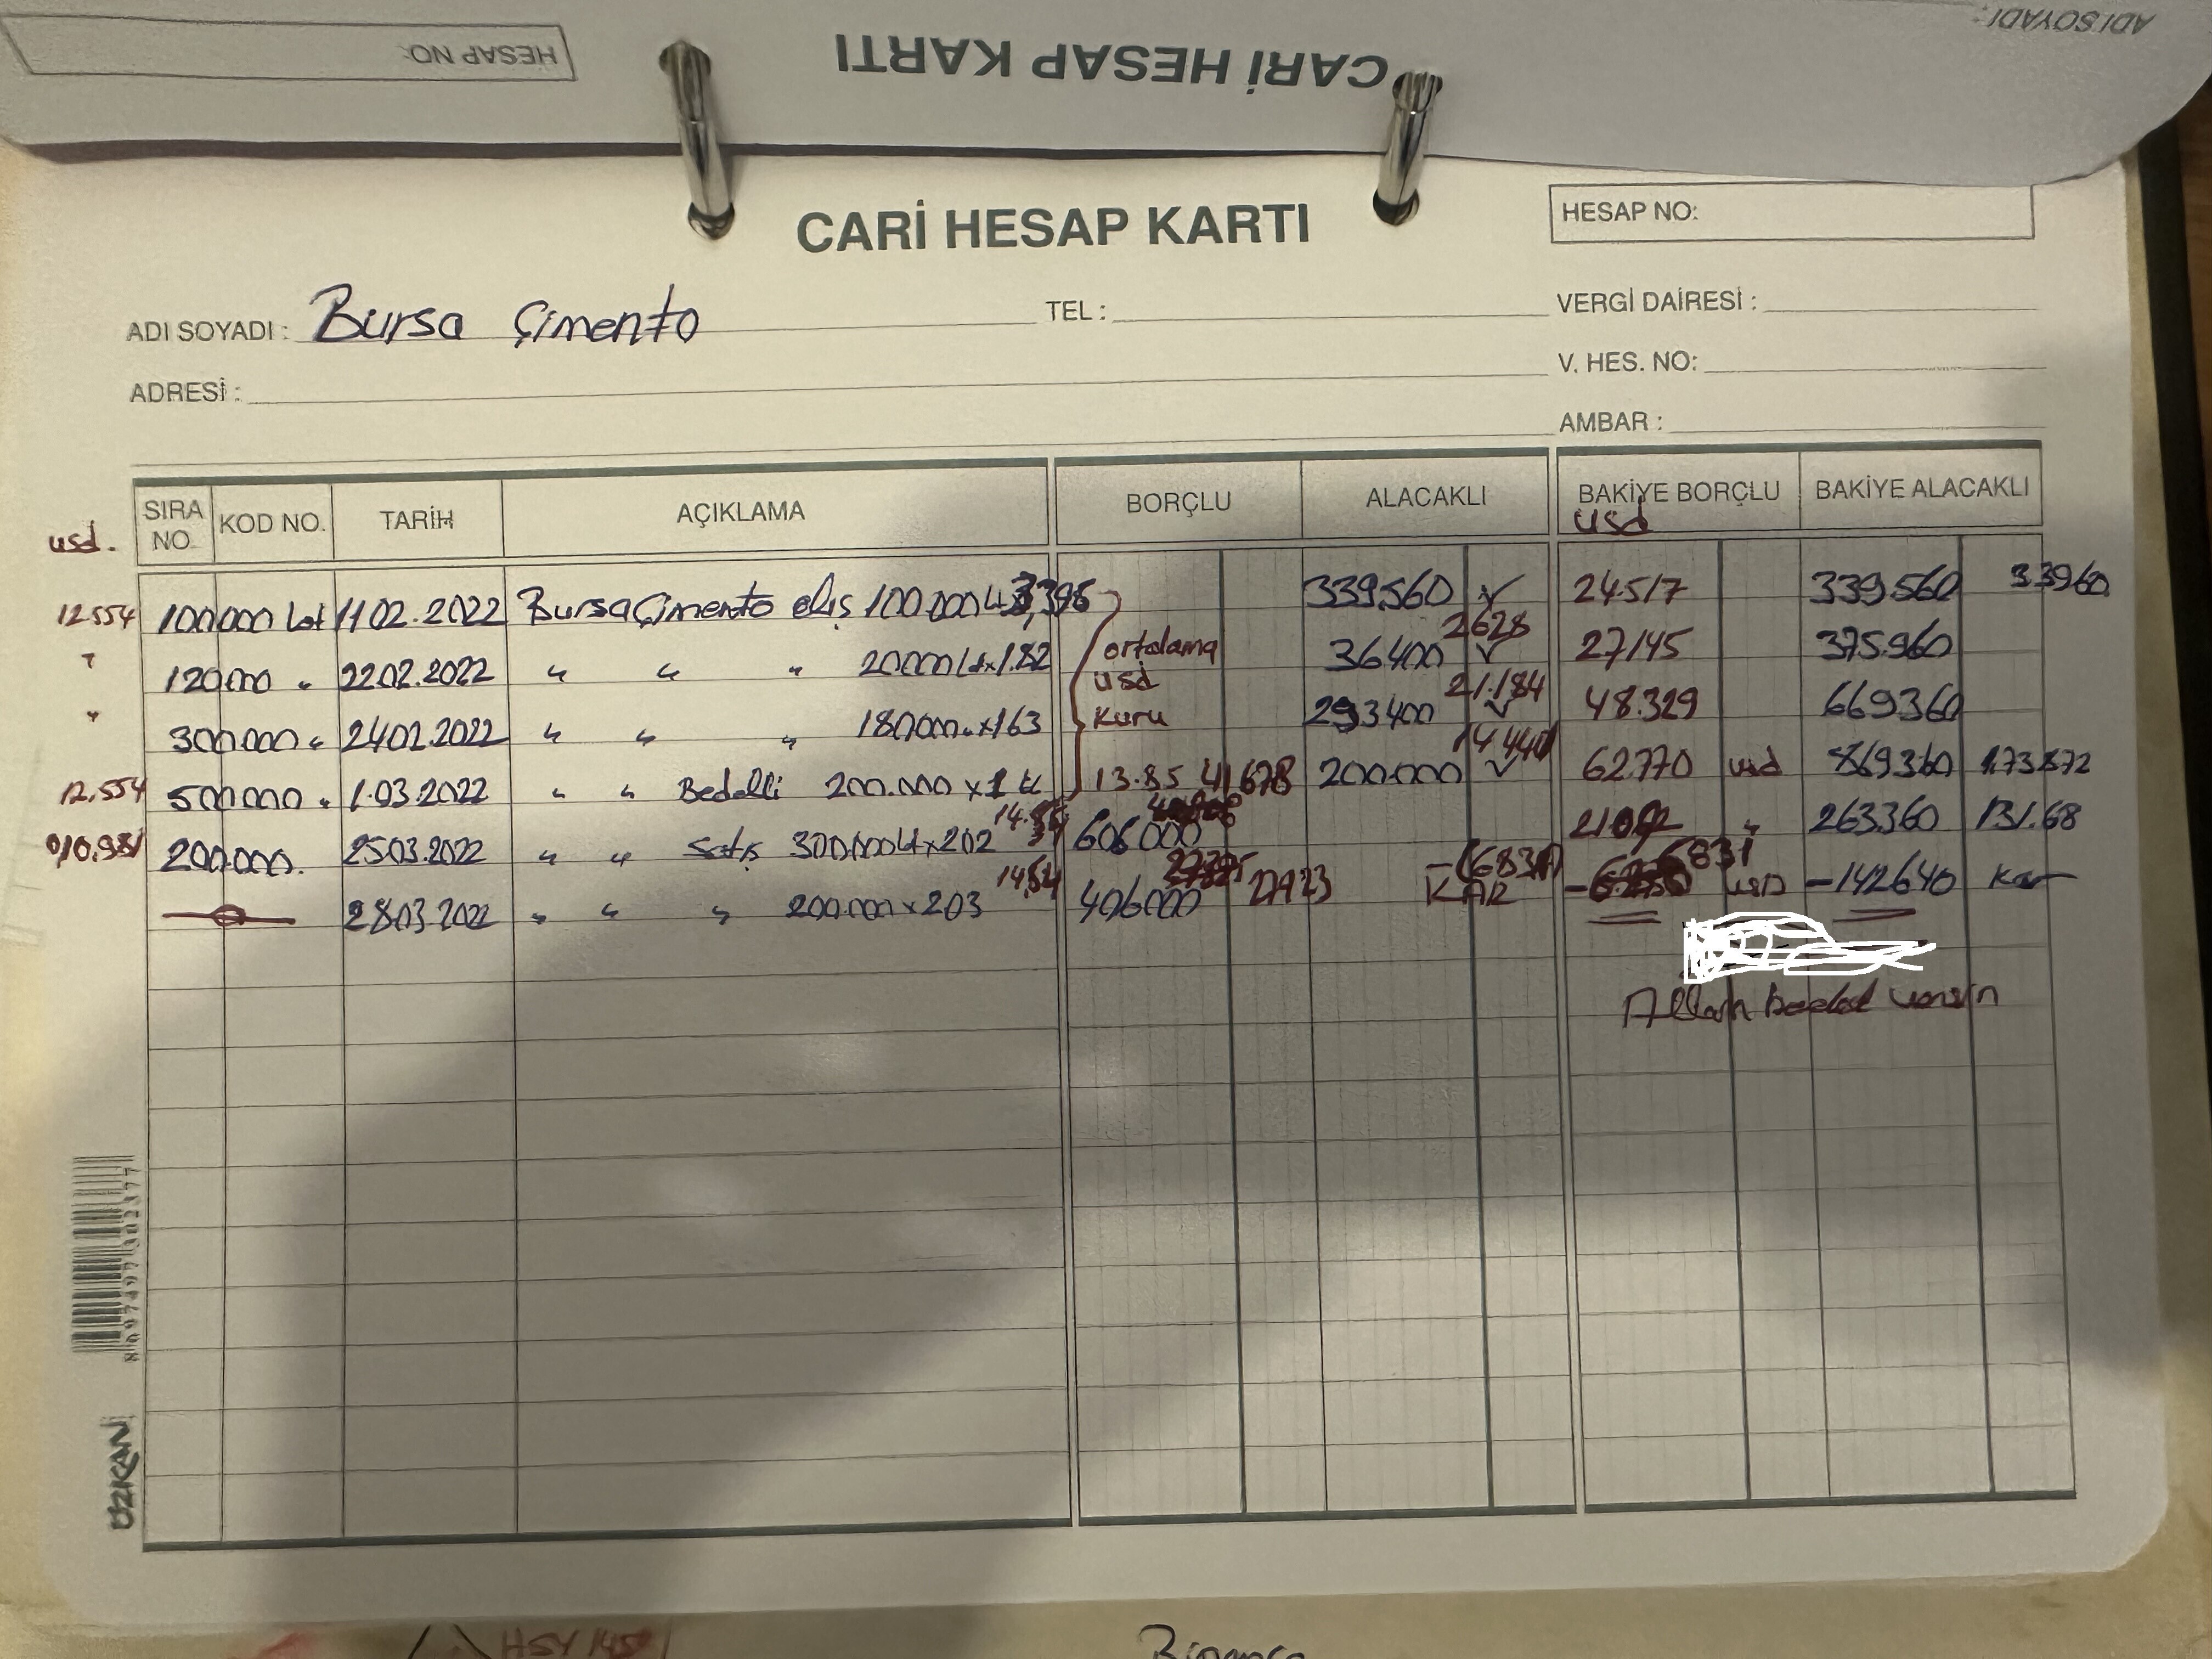 HESAP NO:
CARİ HESAP KARTI
ADI SOYADI :
CARİ HESAP KARTI
HESAP NO:
ADI SOYADI : Bursa Çimento
TEL :
VERGİ DAİRESİ :
ADRESİ :
V. HES. NO:
AMBAR :
usd. SIRA NO. KOD NO. TARİH AÇIKLAMA BORÇLU ALACAKLI BAKİYE BORÇLU usd BAKİYE ALACAKLI
12.554 100.000 Lot 11.02.2022 Bursa Çimento alış 100.000 339.560 ✓ 24.517 339.560 3.3960
" 120.000 " 22.02.2022 " " " 20.000 Lt x 1.82 ortalama 36.400 2628 ✓ 27145 375.960
" 300.000 " 24.02.2022 " " " 180.000 " x 163 usd kuru 293.400 21.184 ✓ 48.329 669.360
12.554 500.000 " 1.03.2022 " " Bedelli 200.000 x 1 tl 13.85 41678 200.000 14440 ✓ 62.770 usd 869.360 1.73.872
10.981 200.000. 25.03.2022 " " satış 300.000 Lt x 202 606.000 " 263.360 131.68
28.03.2022 " " " 200.000 x 203 406.000 27923 KAR 6831 usd -142640 Kar
Allah bereket versin
8 697497 302377
ÜZKAN